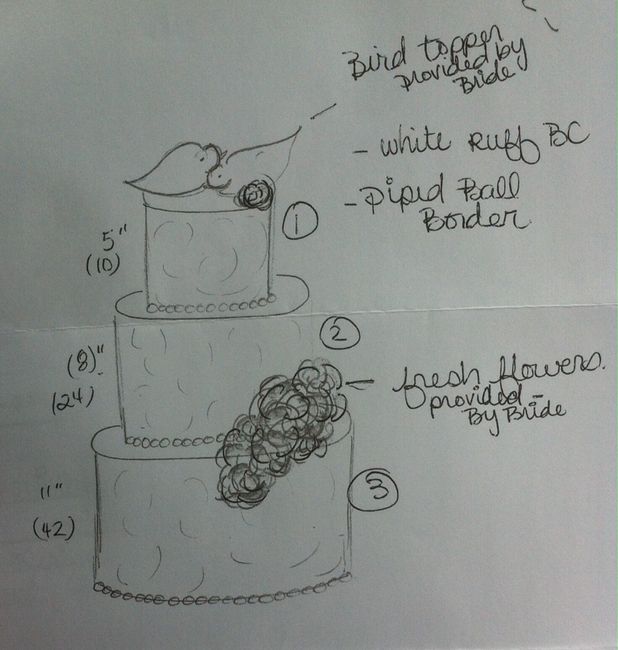 Bird topper
provided by
Bride
- white Ruff BC
- Pipid Ball
Border
1
5"
(10)
2
(8)"
(24)
fresh flowers.
provided -
By Bride
3
11"
(42)